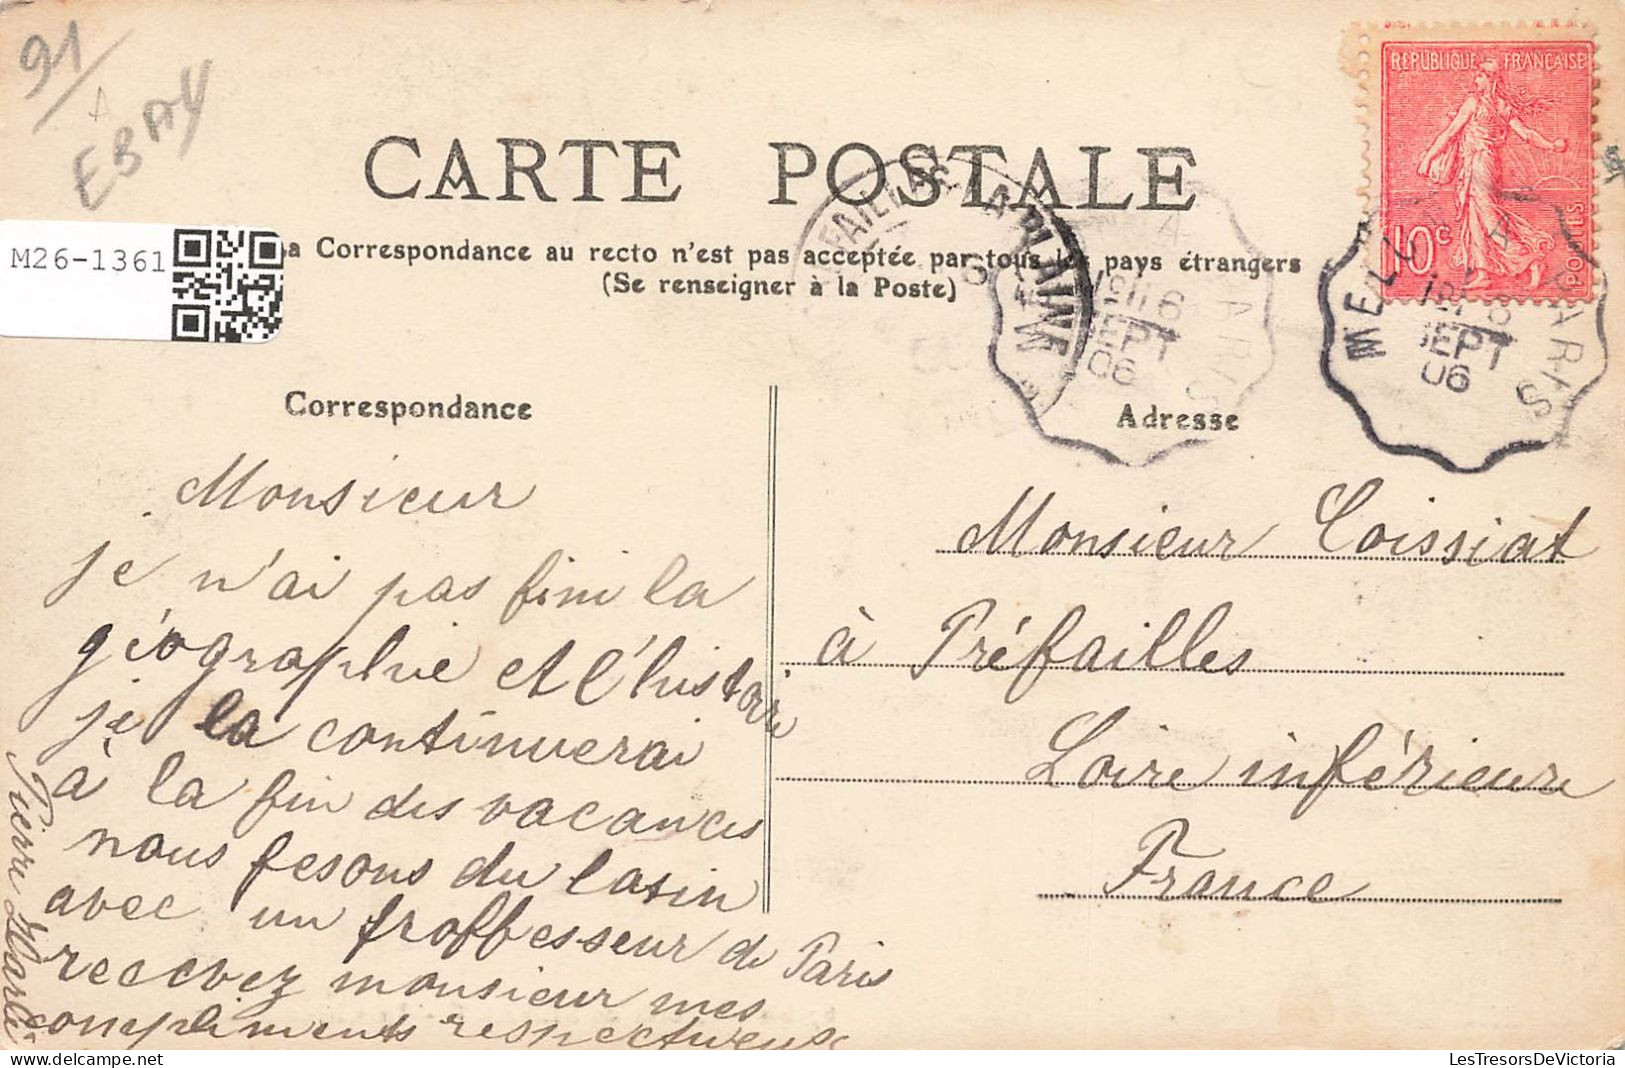 91
EBAY
M26-1361
CARTE POSTALE
La Correspondance au recto n'est pas acceptée par tous les pays étrangers
(Se renseigner à la Poste)
REPUBLIQUE FRANÇAISE
10c
POSTES
MELUN A PARIS
SEPT
06
MELUN A PARIS
SEPT
06
LA PLAINE
Correspondance
Monsieur
je n'ai pas fini la
géographie et l'histoire
je la continuerai
à la fin des vacances
nous fesons du lasin
avec un proffesseur de Paris
recevez monsieur mes
compliments respectueux
Pierre
Adresse
Monsieur Coissiat
à Préfailles
Loire inférieure
France
LesTresorsDeVictoria